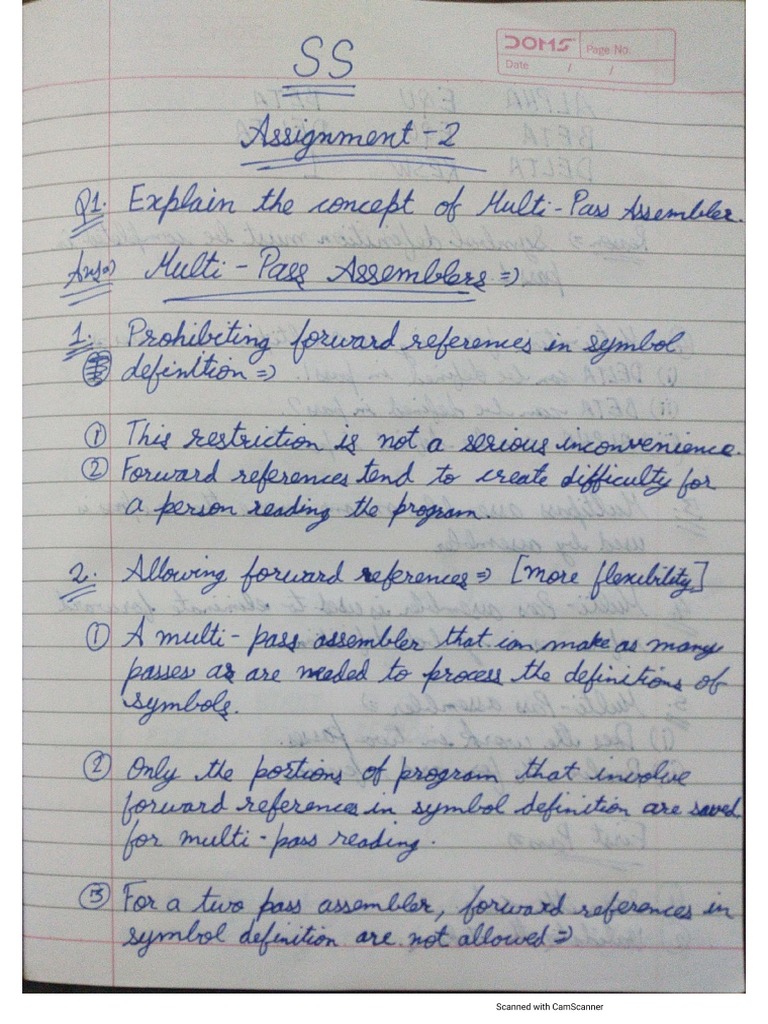 SS
DOMS Page No.
Date / /
Assignment-2
Q1. Explain the concept of Multi-Pass Assembler.
Ans⇒ Multi-Pass Assemblers ⇒
1. Prohibiting forward references in symbol
definition ⇒
① This restriction is not a serious inconvenience.
② Forward references tend to create difficulty for
a person reading the program.
2. Allowing forward references ⇒ [more flexibility]
① A multi-pass assembler that can make as many
passes as are needed to process the definitions of
symbols.
② Only the portions of program that involve
forward references in symbol definition are saved
for multi-pass reading.
③ For a two pass assembler, forward references in
symbol definition are not allowed ⇒
Scanned with CamScanner